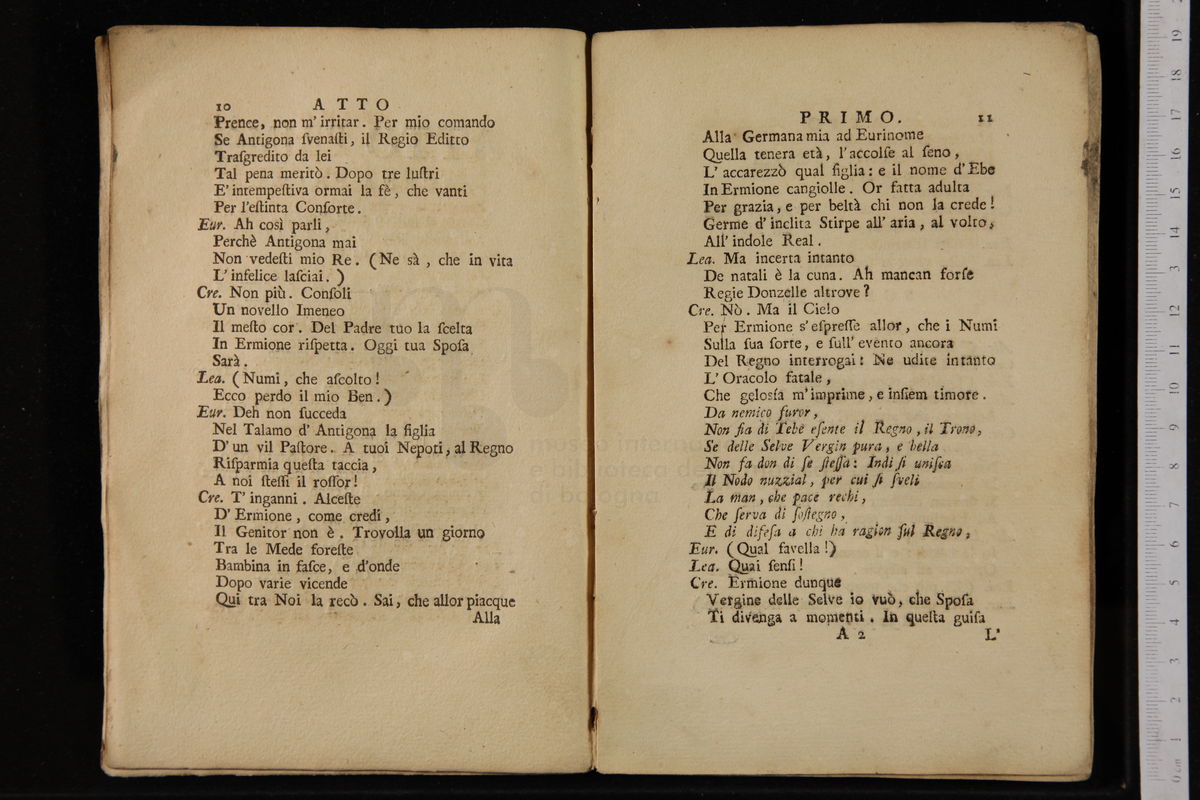 10 ATTO
Prence, non m' irritar. Per mio comando
Se Antigona ſvenaſti, il Regio Editto
Traſgredito da lei
Tal pena meritò. Dopo tre luſtri
E' intempeſtiva ormai la fè, che vanti
Per l'eſtinta Conſorte.
Eur. Ah così parli,
Perchè Antigona mai
Non vedeſti mio Re. (Ne sà, che in vita
L' infelice laſciai.)
Cre. Non più. Conſoli
Un novello Imeneo
Il meſto cor. Del Padre tuo la ſcelta
In Ermione riſpetta. Oggi tua Spoſa
Sarà.
Lea. (Numi, che aſcolto!
Ecco perdo il mio Ben.)
Eur. Deh non ſucceda
Nel Talamo d' Antigona la figlia
D' un vil Paſtore. A tuoi Nepoti, al Regno
Riſparmia queſta taccia,
A noi ſteſſi il roſſor!
Cre. T' inganni. Alceſte
D' Ermione, come credi,
Il Genitor non è. Trovolla un giorno
Tra le Mede foreſte
Bambina in faſce, e d'onde
Dopo varie vicende
Qui tra Noi la recò. Sai, che allor piacque
Alla
PRIMO. 11
Alla Germana mia ad Eurinome
Quella tenera età, l'accolſe al ſeno,
L' accarezzò qual figlia: e il nome d'Ebe
In Ermione cangiolle. Or fatta adulta
Per grazia, e per beltà chi non la crede!
Germe d' inclita Stirpe all' aria, al volto,
All' indole Real.
Lea. Ma incerta intanto
De natali è la cuna. Ah mancan forſe
Regie Donzelle altrove?
Cre. Nò. Ma il Cielo
Per Ermione s' eſpreſſe allor, che i Numi
Sulla ſua ſorte, e ſull' evento ancora
Del Regno interrogai: Ne udite intanto
L' Oracolo fatale,
Che gelosía m'imprime, e inſiem timore.
Da nemico furor,
Non fia di Tebe eſente il Regno, il Trono,
Se delle Selve Vergin pura, e bella
Non fa don di ſe ſteſſa: Indi ſi uniſca
Il Nodo nuzzial, per cui ſi ſveli
La man, che pace rechi,
Che ſerva di ſoſtegno,
E di difeſa a chi ha ragion ſul Regno,
Eur. (Qual favella!)
Lea. Quai ſenſi!
Cre. Ermione dunque
Vergine delle Selve io vuò, che Spoſa
Ti divenga a momenti. In queſta guiſa
A 2 L'
0 cm 1 2 3 4 5 6 7 8 9 10 11 12 13 14 15 16 17 18 19